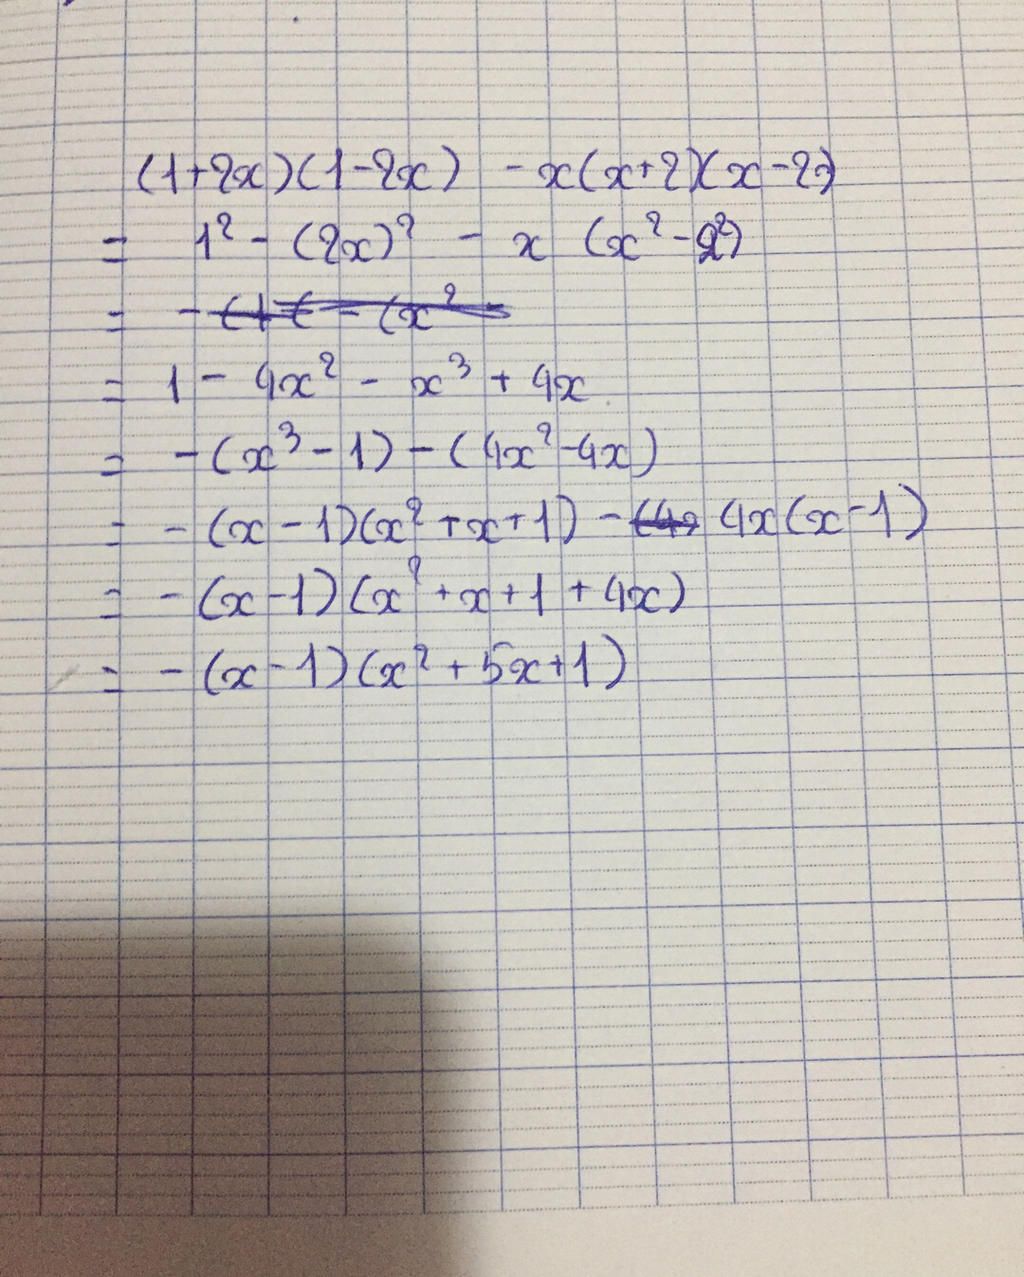 (1+2x)(1-2x) - x(x+2)(x-2)
= 1² - (2x)² - x (x² - 2²)
= 1 - 4x² - x³ + 4x
= -(x³ - 1) - (4x² - 4x)
= -(x - 1)(x² + x + 1) - 4x(x - 1)
= -(x - 1)(x² + x + 1 + 4x)
= -(x - 1)(x² + 5x + 1)